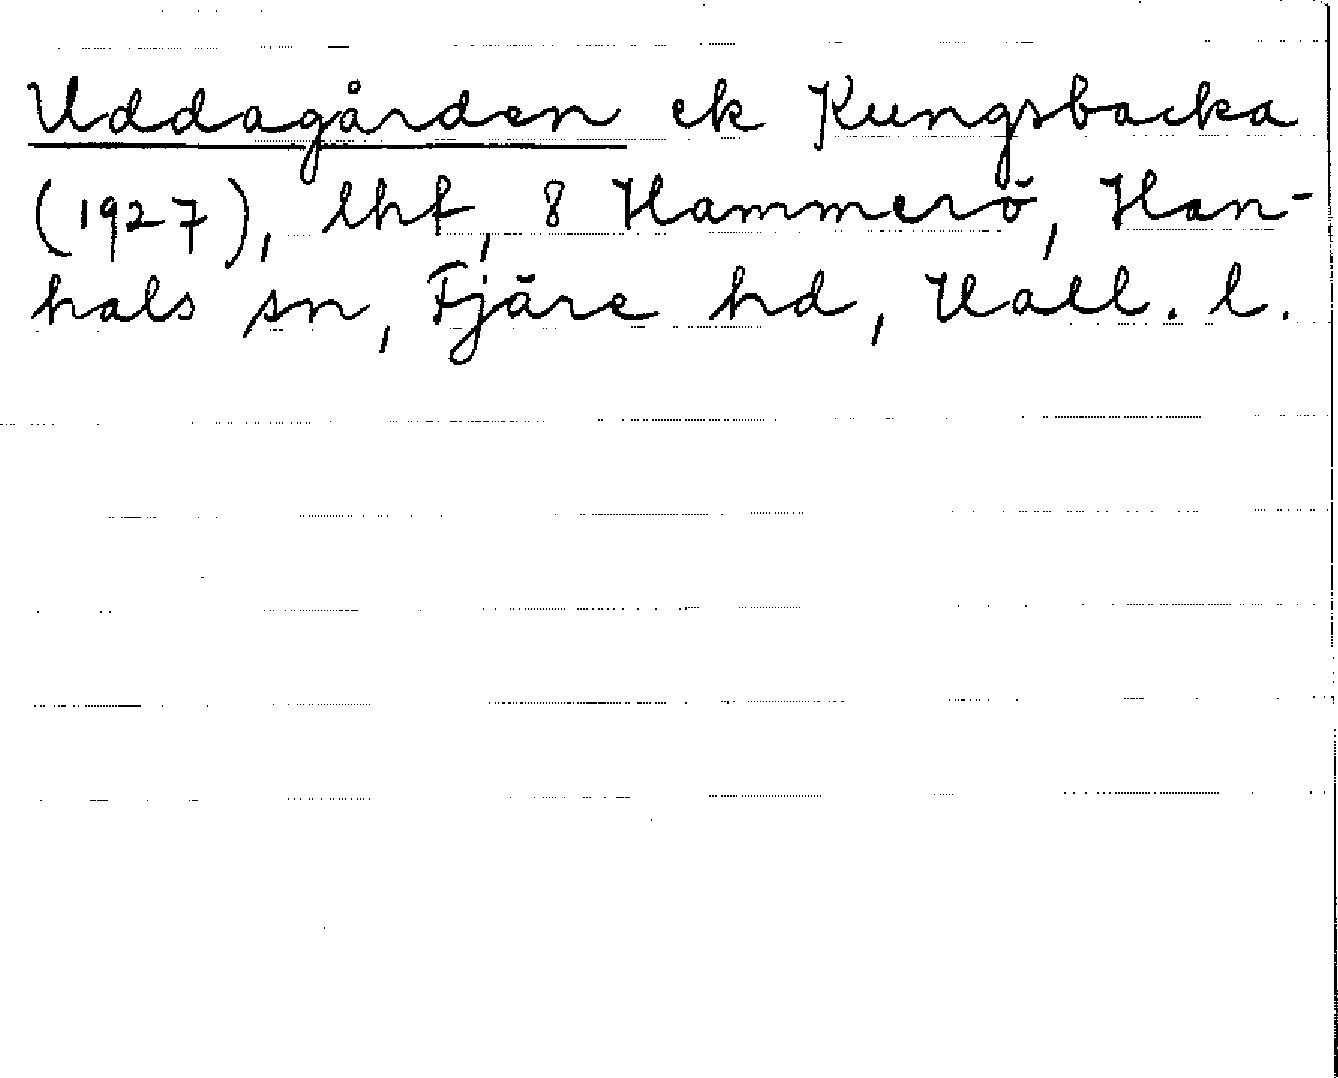 Uddagården ek Kungsbacka
(1927), lhf, 8 Hammerö, Han-
hals sn, Fjäre hd, Hall. l.